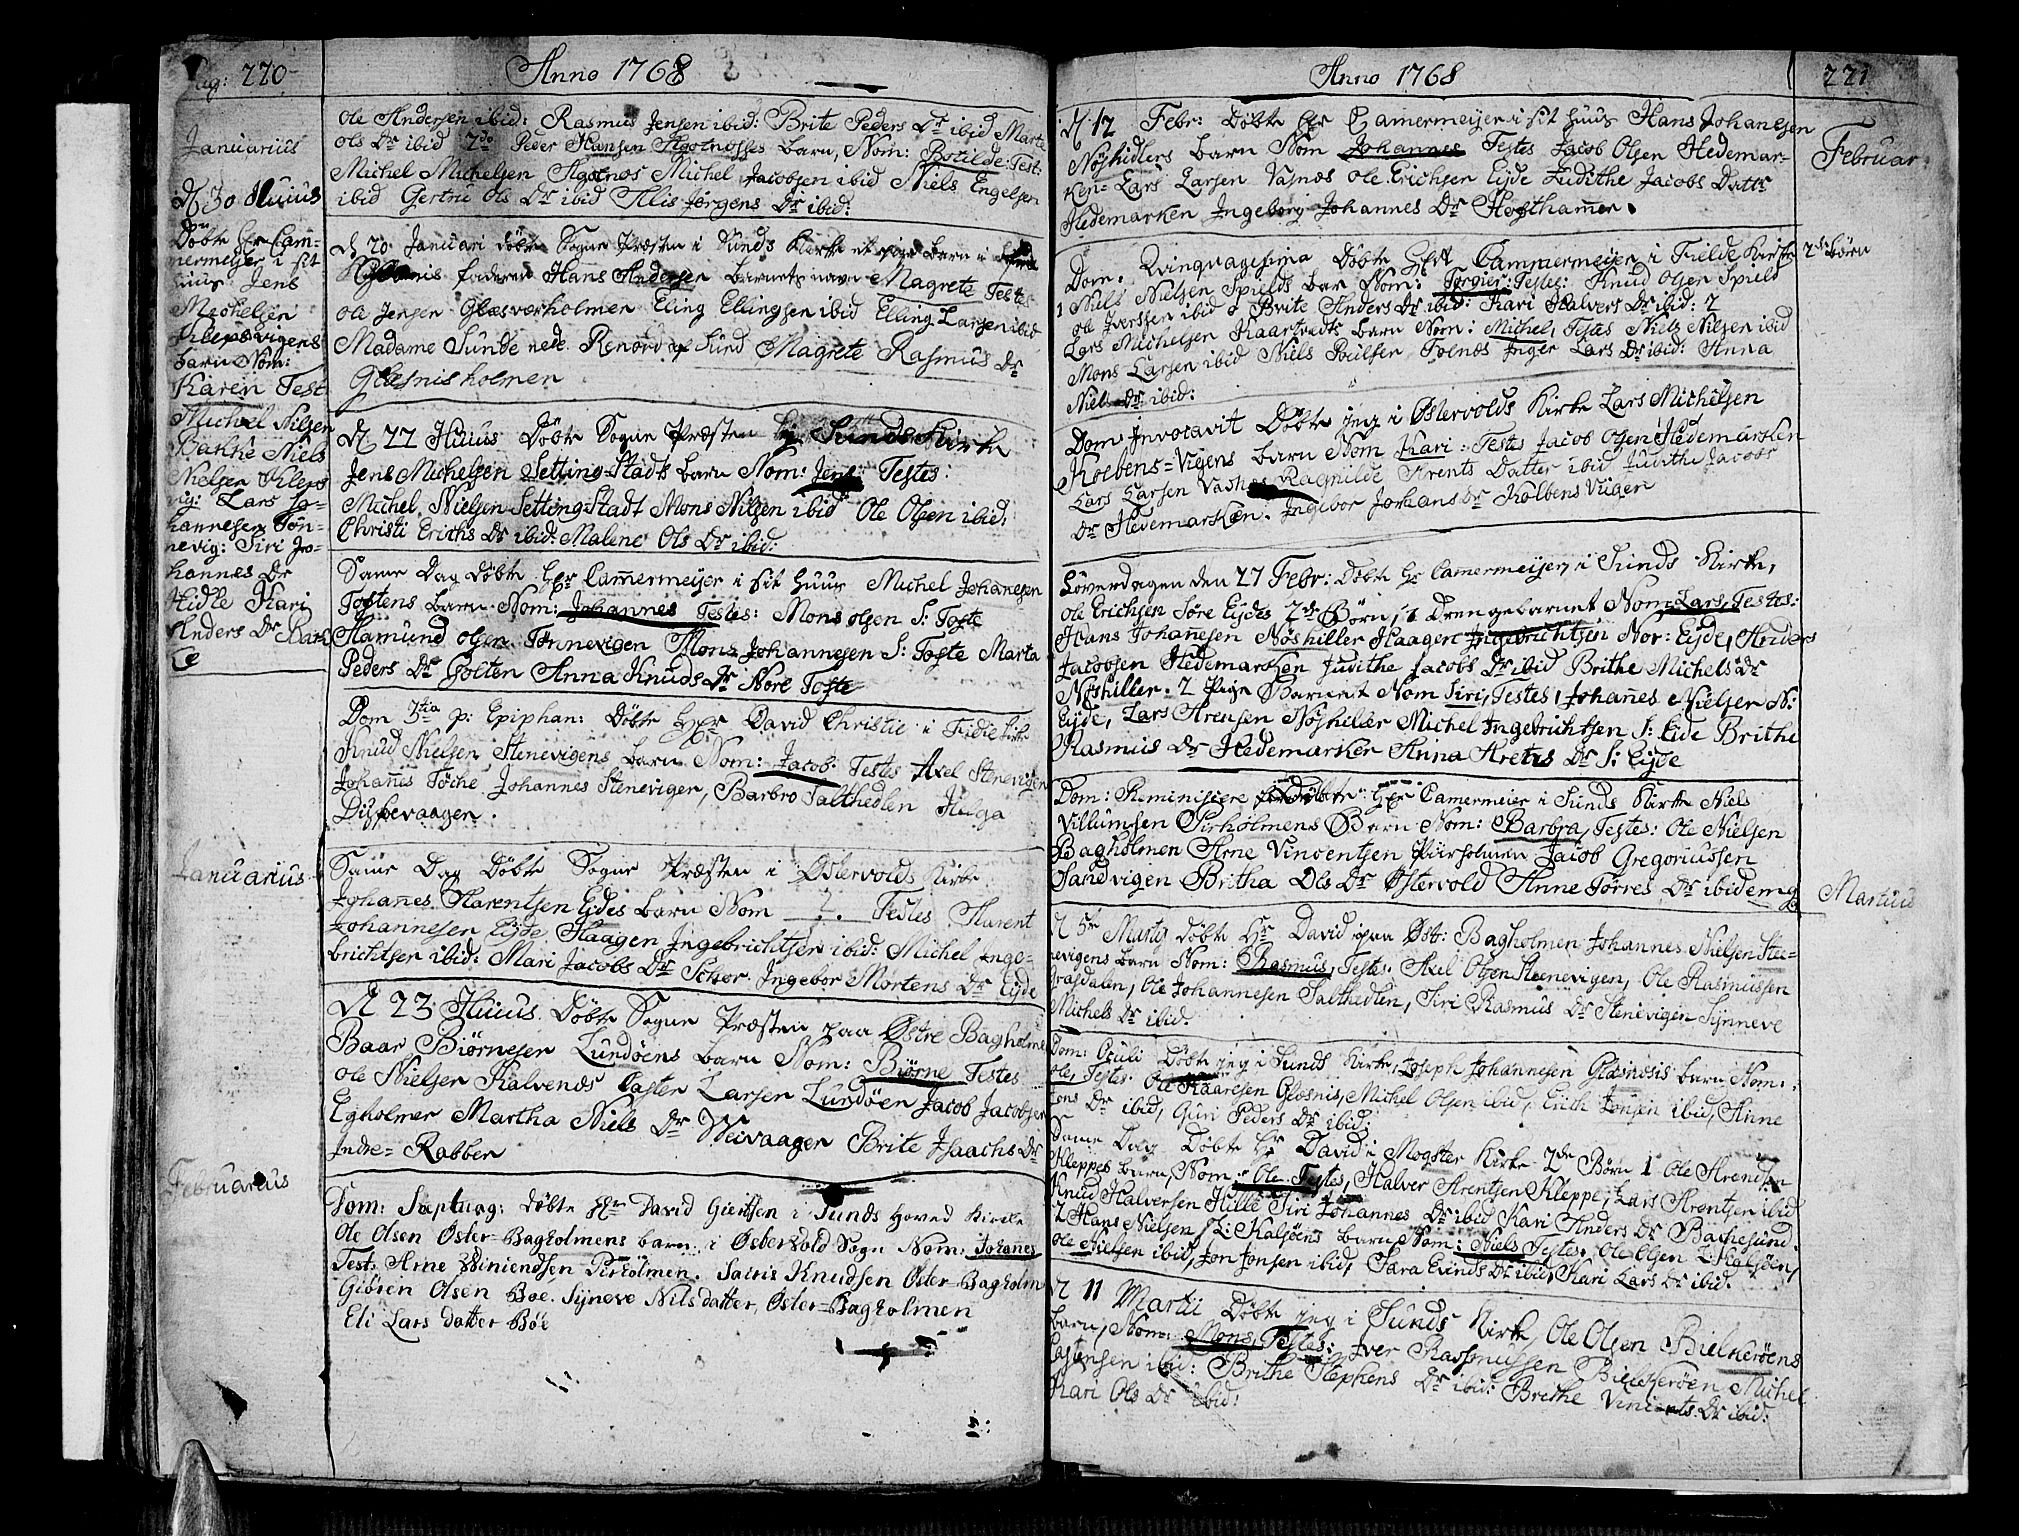 Pag: 220
Anno 1768
Januarius
d 30 Huius
Döbte Hr Cam=
mermeijer i sit
huus Jens
Mechelsen
Kleppevigens
barn Nom:
Karen Test
Michel Nilsen
Bakke Niels
Nielsen Klepe
vig: Lars Jo=
hannesen Tön=
nevig: Siri Jo=
hannes Dr
Hidle Kari
Anders Dr Bak
ke
Januarius
Februarius
Ole Andersen ibid: Rasmus Jensen ibid: Brite Peders Dr ibid Marte
Ols Dr ibid 2do Peder Hansen Agotnesses barn, Nom: Botilde: Test:
Michel Michelsen Agotnes Michel Jacobsen ibid Niels Engelsen
ibid Gertru Ols Dr ibid Alis Jörgens Dr ibid:
d 20 Januari döbte Sogne Præsten i Sunds Kirke et barn i
faderen Hans Andersen barnets navn Magrete Testes
Ole Jensen Glæsværholmen Eling Ellingsen ibid Elling Larsen ibid
Madame Sunde nede Renord af Sund Magrete Rasmus Dr
Glesnisholmen
d 22 Huius Döbte Sogne Præsten i Sunds Kirke
Jens Michelsen Setting=Stadt barn Nom: Jens Testes:
Michel Nielsen Setting=Stadt Mons Nilsen ibid Ole Olsen ibid:
Christi Erichs Dr ibid: Malene Ols Dr ibid:
Same Dag Döbte Hr Camermeijer i sit huus Michel Johanesen
Toftens barn Nom: Johannes Testes: Mons olsen S: Tofte
Hamund olsen Tönnevigen Mons Johannesen S: Tofte Marta
Peders Dr Golten Anna Knuds Dr Nore Tofte
Dom 3tia p: Epiphan: Döbte Hr David Christie i Fielde kirke
Knud Nielsen Stenevigens barn Nom: Jacob Testes Axel Stenevigen
Johanes Toche Johannes Steneviger, Barbro Salthedlen Helga
Dyssevaagen.
Same Dag Döbte Sogne Præsten i Østervolds Kirke
Johanes Harentsen Eides barn Nom ? Testes Harent
Johannesen Eijde Haagen Ingebrichtsen ibid: Michel Inge=
brichtsen ibid: Mari Jacobs Dr Schor Ingebor Mortens Dr Eijde
d 23 Huius Döbte Sogne Præsten paa Østre Bagholme
Baar Biörnesen Lundöens barn Nom: Biörne Testes
Ole Nielsen Kalvenes Casten Larsen Lundöen Jacob Jacobsen
Egholmer Martha Niels Dr Weivaagen Brite Isaachs Dr
Indre= Rabben
Dom: Septuag: döbte Hr David Giertsen i Sunds Hoved Kirke
Ole Olsen Øster=Bagholmens barn i Østervold Sogn Nom: Johanes
Test: Arne Winiendsen Pirholmen. Sairis Knudsen Øster=Bagholm
Giören Olsen Böe. Synneve Nilsdatter, Øster=Bagholmen
Eli Lars datter Böe
Anno 1768
221
d 12 Febr: Döbte Hr Camermeijer i sit huus Hans Johanesen
Nöshidlers barn Nom Johannes Testes Jacob Olsen Hedemar=
ken= Lars Larsen Vasnæs Ole Erichsen Eijde Judithe Jacobs Dattr
Hedemarken Ingeborg Johannes Dr Hosthamer.
Februar
Dom: Qvinquagesima Döbte Hr Cammermeijer i Fielde Kirke 2de Börn
1 Niels Nielsen Spields bar Nom: Torgier: Testes: Knud Olsen Spield
Ole Iverssen ibid Brite Anders Dr ibid: Kari Halvers Dr ibid: 2
Lars Michelsen Kaartvedts barn Nom: Michel, Testes Niels Nilsen ibid
Mons Larsen ibid Niels Poulsen Toenæs Inger Lars Dr ibid: Anna
Niels Dr ibid:
Dom Invocavit Döbte jeg i Østervolds Kirke Lars Michelsen
Kolbens=Vigens barn Nom Kari: Testes Jacob Olsen Hedemarken
Lars Larsen Vasnæs Ragnilde Arents Datter ibid Judithe Jacobs
Dr Hedemarken: Ingebor Johans Dr Kolbens Vigen
Löverdagen den 27 Febr: Döbte Hr Camermeijer i Sunds Kirke,
Ole Erichsen Söre Eijdes 2de Börn, 1 Drengebarnet Nom: Lars, Testes:
Hans Johanesen Nöshiller Haagen Ingebrichtsen Nor: Eijde, Anders
Jacobsen Hedemarken Judithe Jacobs Dr ibid Brithe Michels Dr
Nöshiller. 2 Pige Barnet Nom Siri, Testes, Johanes Nielsen N:
Eijde, Lars Arensen Nöshiller Michel Ingebrichtsen S: Eide Brithe
Rasmus Dr Hedemarken Anna Arents Dr S: Eijde
Dom: Reminiscere Döbte Hr Camermeier i Sunds Kirke Niels
Villumsen Pirholmens Barn Nom: Barbra, Testes: Ole Nielsen
Bagholmen Arne Vincentsen Pirholmen Jacob Gregoriussen
Sandvigen Britha Ols Dr Østervold Anne Törres Dr ibidem
Martius
d 5te Martij döbte Hr David paa Øst: Bagholmen Johannes Nielsen Ste=
nevigens barn Nom: Rasmus, Testes. Axel Olsen Stenevigen, Ole Rasmussen
, Ole Johannesen Salthedlen, Siri Rasmus Dr Stenevigen Synneve
Michels Dr ibid.
Dom: Oculi Döbte jeg i Sunds Kirke, Joseph Johannesen Glæsnæsis barn Nom:
Ole, Testes. Ole Kaaresen Glæsnis, Michel Olsen ibid, Erich Jonsen ibid, Anne
Dr ibid, Guri Peders Dr ibid:
Same Dag Döbte Hr David i Mögster Kirke 2de Börn 1 Ole Arendsen
Kleppes barn, Nom: Ole Testes, Halver Arentsen Kleppe, Lars Arentsen ibid
Knud Halversen Hille Siri Johannes Dr ibid Kari Anders Dr Bachesund.
2 Hans Nielsen L: Kalsöens barn Nom: Niels Testes. Ole Olsen L: Kalsöen,
Ole Nielsen ibid, Jon Jonsen ibid, Sara Evinds Dr ibid, Kari Lars Dr ibid.
d 11 Martii Döbte jeg i Sunds Kirke Ole Olsen Bielkeröens
barn, Nom: Mons, Testes: Iver Rasmussen Bielkeröen Michel
Castensen ibid: Brithe Stephens Dr ibid: Brithe Vincents Dr ibid:
Kari Ols Dr ibid: